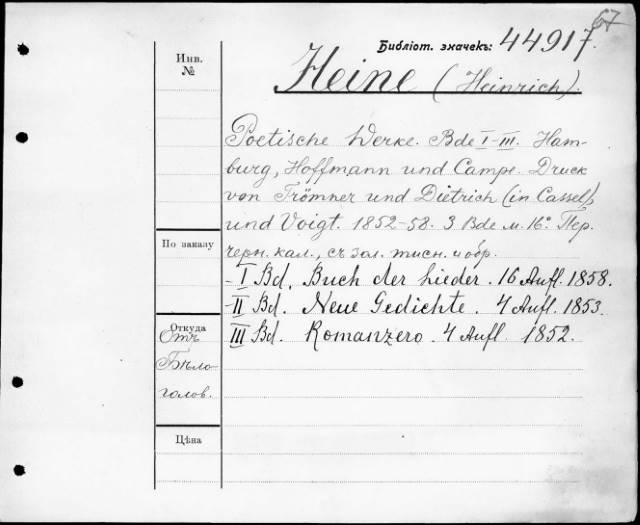 67
Библіот. значекъ: 44917.
Инв.
№
Heine (Heinrich).
Poetische Werke. Bde I-III. Ham-
burg, Hoffmann und Campe. Druck
von Trömner und Dietrich (in Cassel),
und Voigt. 1852-58. 3 Bde м. 16°. Пер.
черн. кал., съ зол. тисн. и обр.
По заказу
- I Bd. Buch der Lieder. 16 Aufl. 1858.
- II Bd. Neue Gedichte. 4 Aufl. 1853.
III Bd. Romanzero. 4 Aufl. 1852.
Откуда
Отъ
Бѣло-
голов.
Цѣна